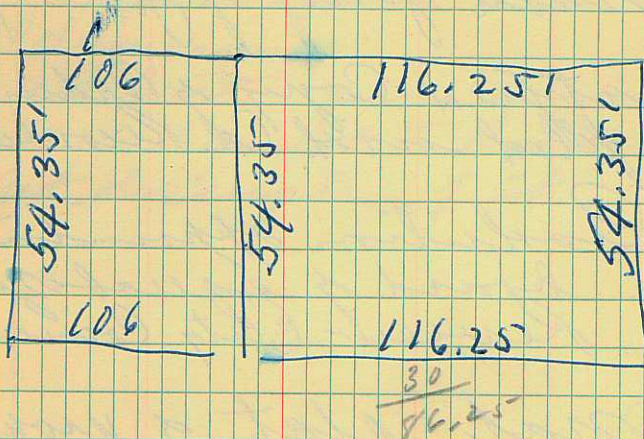 106 116.25'
54.35' 54.35 54.35'
106 116.25
30
86.25